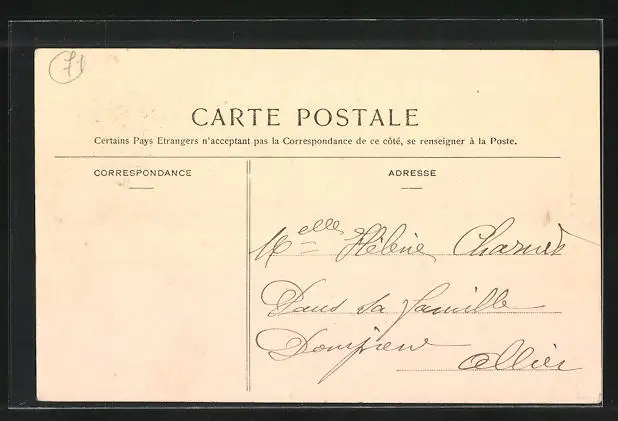 71
CARTE POSTALE
Certains Pays Etrangers n'acceptant pas la Correspondance de ce côté, se renseigner à la Poste.
CORRESPONDANCE
ADRESSE
Melle Hélène
Dans sa famille
Dompierre
Allier